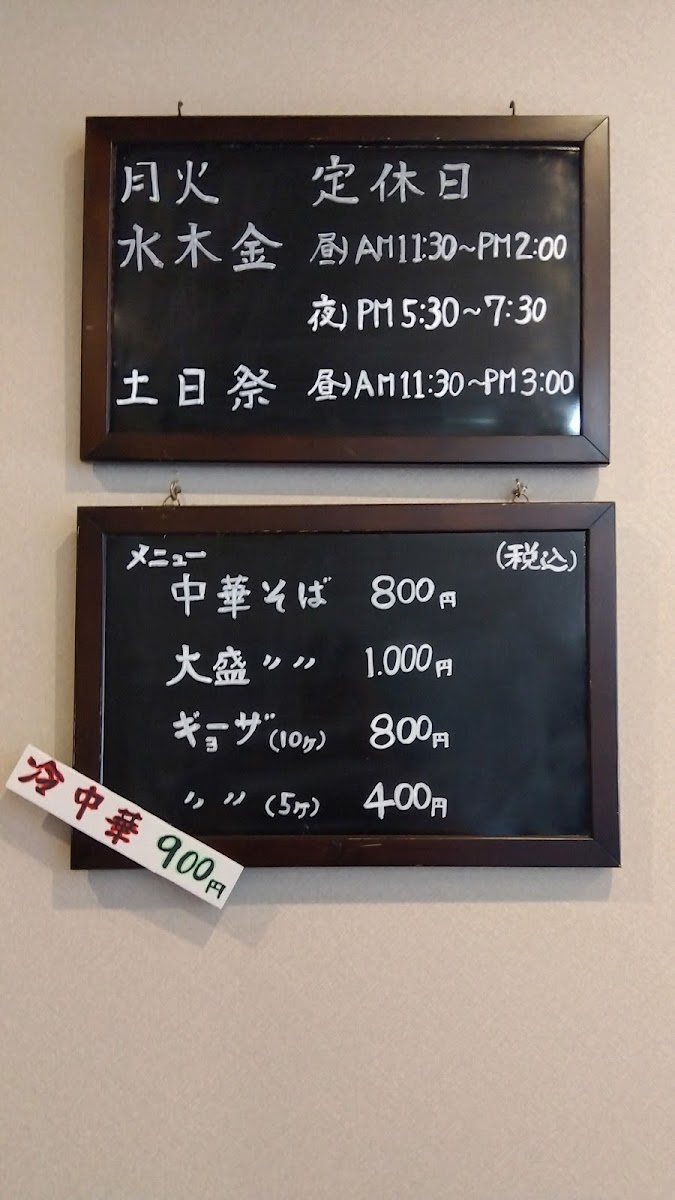 月火 定休日
水木金 昼)AM11:30~PM2:00
夜)PM5:30~7:30
土日祭 昼)AM11:30~PM3:00
メニュー (税込)
中華そば 800円
大盛〃〃 1.000円
ギョーザ(10ヶ) 800円
〃〃(5ヶ) 400円
冷中華 900円